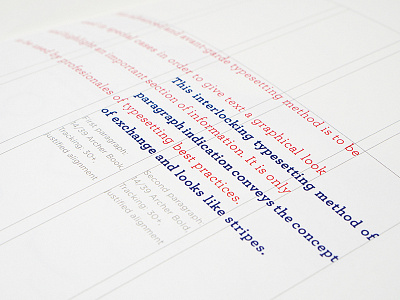 and avant-garde typesetting method is to be
special cases in order to give text a graphical look
This interlocking typesetting method of
highlight an important section of information. It is only
paragraph indication conveys the concept
used by professionales of typesetting best practices.
of exchange and looks like stripes.
First paragraph
14/39 Archer Bold
Tracking 30+
Justified alignment
Second paragraph
14/39 Archer Bold
Tracking 30+
Justified alignment